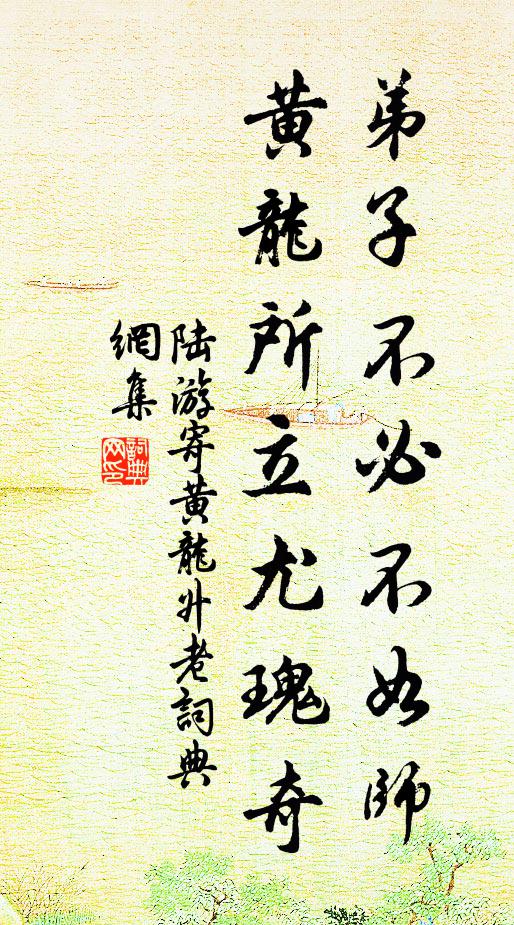 弟子不必不如師
黃龍所立尤瑰奇
陸游寄黃龍升老詞典
網集
詞典
网印